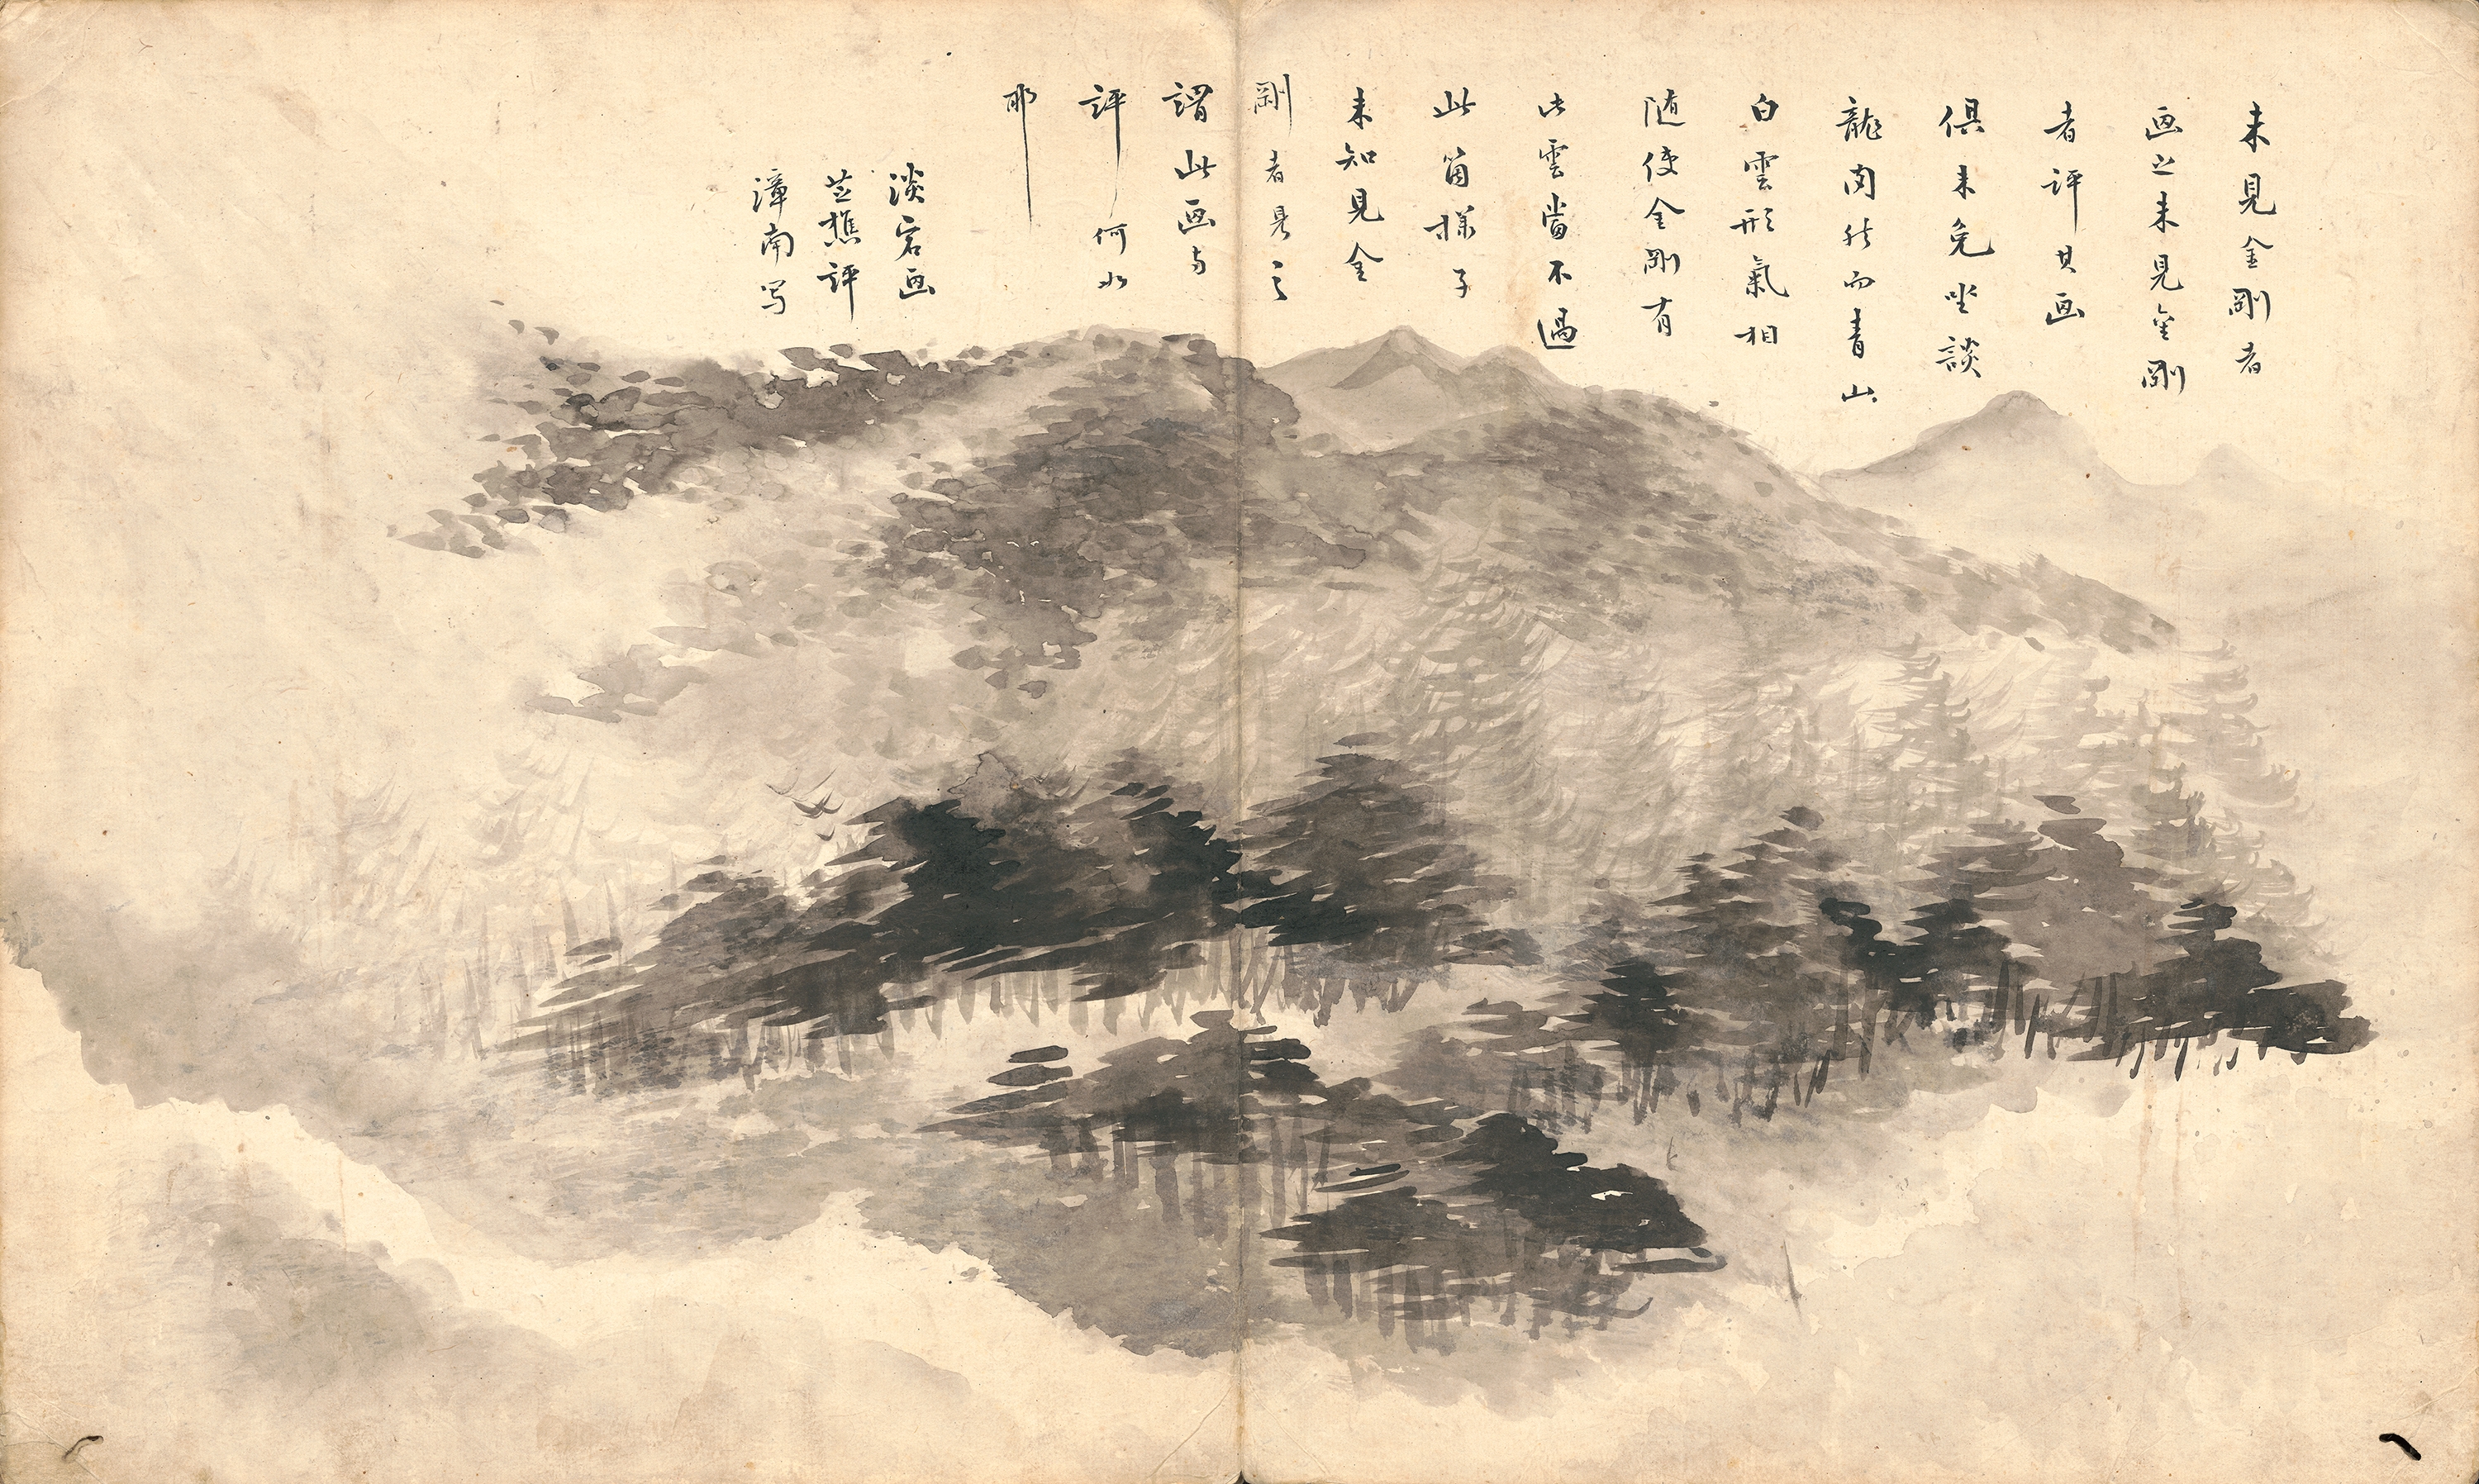 未見金剛者
画之未見金剛
者評其画
俱未免坐談
龍肉然而青山
白雲形氣相
随使金剛有
此雲當不過
此箇樣子
未知見金
剛者是之
謂此画与
評何如
耶
淡宕画
芝樵評
漳南写